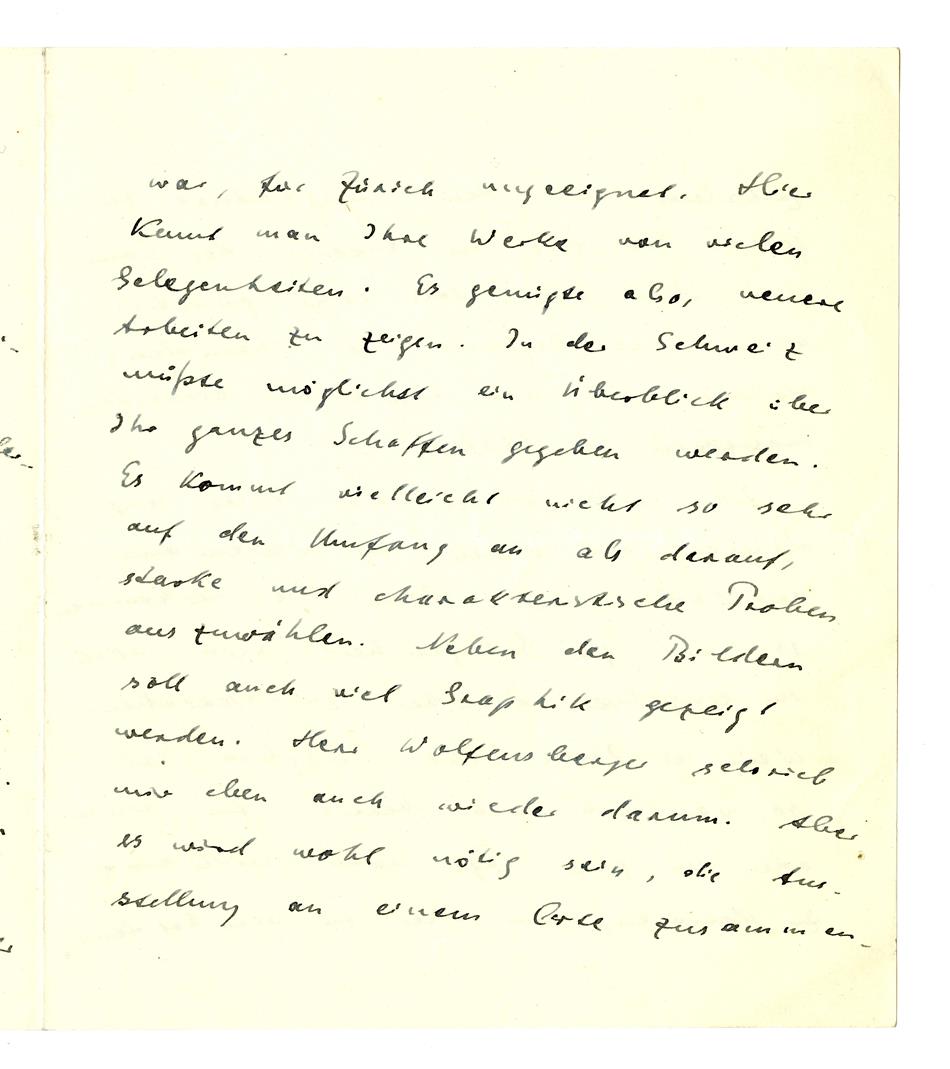 war, für Zürich ungeeignet. Hier
kennt man Ihre Werke von vielen
Gelegenheiten. Es genügte also, neuere
Arbeiten zu zeigen. In der Schweiz
müßte möglichst ein Überblick über
Ihr ganzes Schaffen gegeben werden.
Es kommt vielleicht nicht so sehr
auf den Umfang an als darauf,
starke und charakteristische Proben
auszuwählen. Neben den Bildern
soll auch viel Graphik gezeigt
werden. Herr Wolfensberger schrieb
mir eben auch wieder darum. Aber
es wird wohl nötig sein, die Aus-
stellung an einem Orte zusammen-